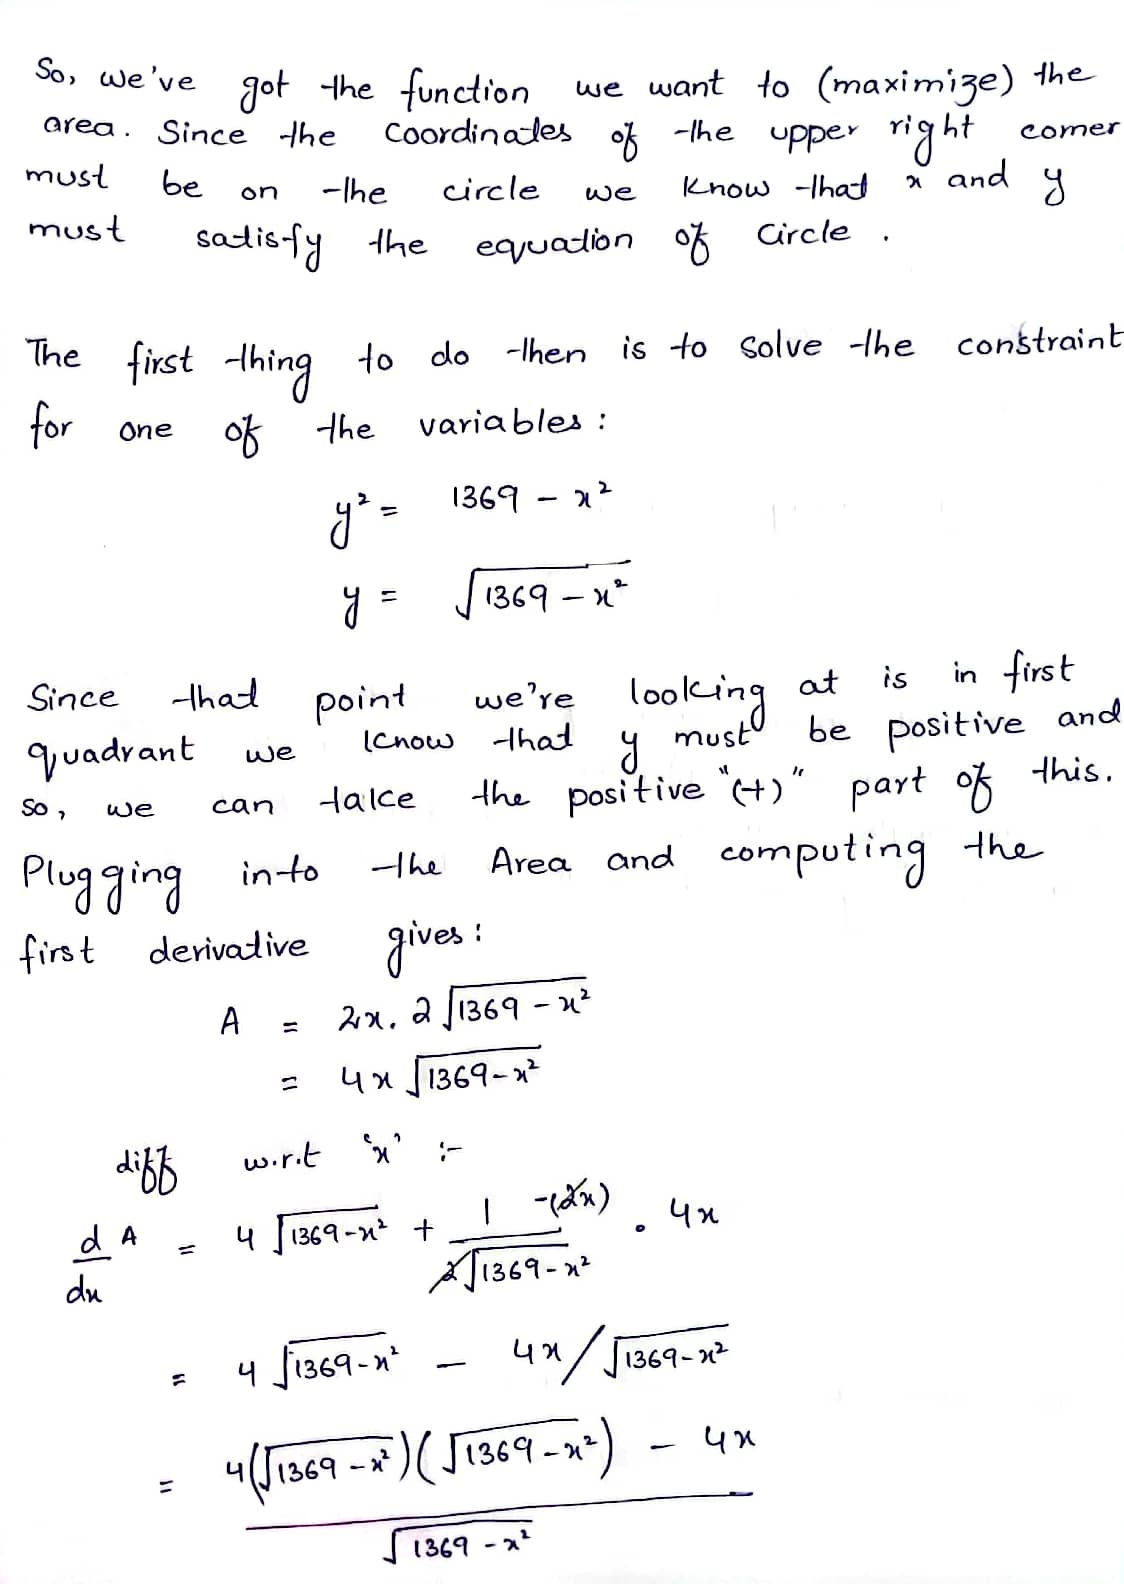 So, we've got the function we want to (maximize) the
area. Since the coordinates of the upper right corner
must be on the circle we know that x and y
must satisfy the equation of circle.
The first thing to do then is to solve the constraint
for one of the variables:
y² = 1369 - x²
y = √1369 - x²
Since that point we're looking at is in first
quadrant we know that y must be positive and
so, we can take the positive "(+)" part of this.
Plugging into the Area and computing the
first derivative gives:
A = 2x. 2√1369 - x²
= 4x √1369-x²
diff w.r.t 'x' :-
d/dx A = 4√1369-x² + 1/2√1369-x² -(2x) . 4x
= 4√1369-x² - 4x/√1369-x²
= 4(√1369-x²)(√1369-x²) - 4x / √1369-x²